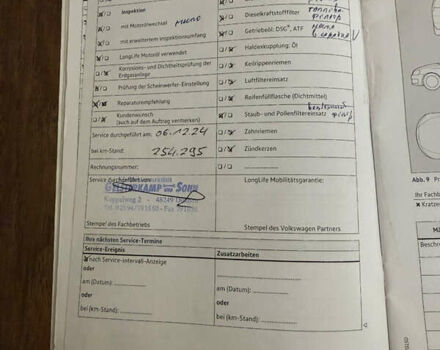 Inspektion
mit Motorölwechsel масло
mit erweitertem Inspektionsumfang
LongLife Motoröl verwendet
Korrosions- und Dichtheitsprüfung der Erdgasanlage
Prüfung der Scheinwerfer-Einstellung
Reparaturempfehlung
Kundenwunsch
(such auf dem Auftrag vermerken)
Service durchgeführt am: 06.12.24
bei km-Stand: 254.295
Rechnungsnummer:
Service durchgeführt von:
Koppelweg 2 - 48249
Stempel des Fachbetriebs
Dieselkraftstofffilter топливн фильтр
Getriebeöl: DSG®, ATF масло в коробке
Haldexkupplung: Öl
Keilrippenriemen
Luftfiltereinsatz
Reifenfüllflasche (Dichtmittel)
Staub- und Pollenfiltereinsatz
Zahnriemen
Zündkerzen
LongLife Mobilitätsgarantie:
Stempel des Volkswagen Partners.
Ihre nächsten Service-Termine
Service-Ereignis
nach Service-Intervall-Anzeige
oder
am (Datum):
oder
bei (km-Stand):
Zusatzarbeiten
am (Datum):
oder
bei (km-Stand):
Abb. 9
Ihr Fachb
Kratze